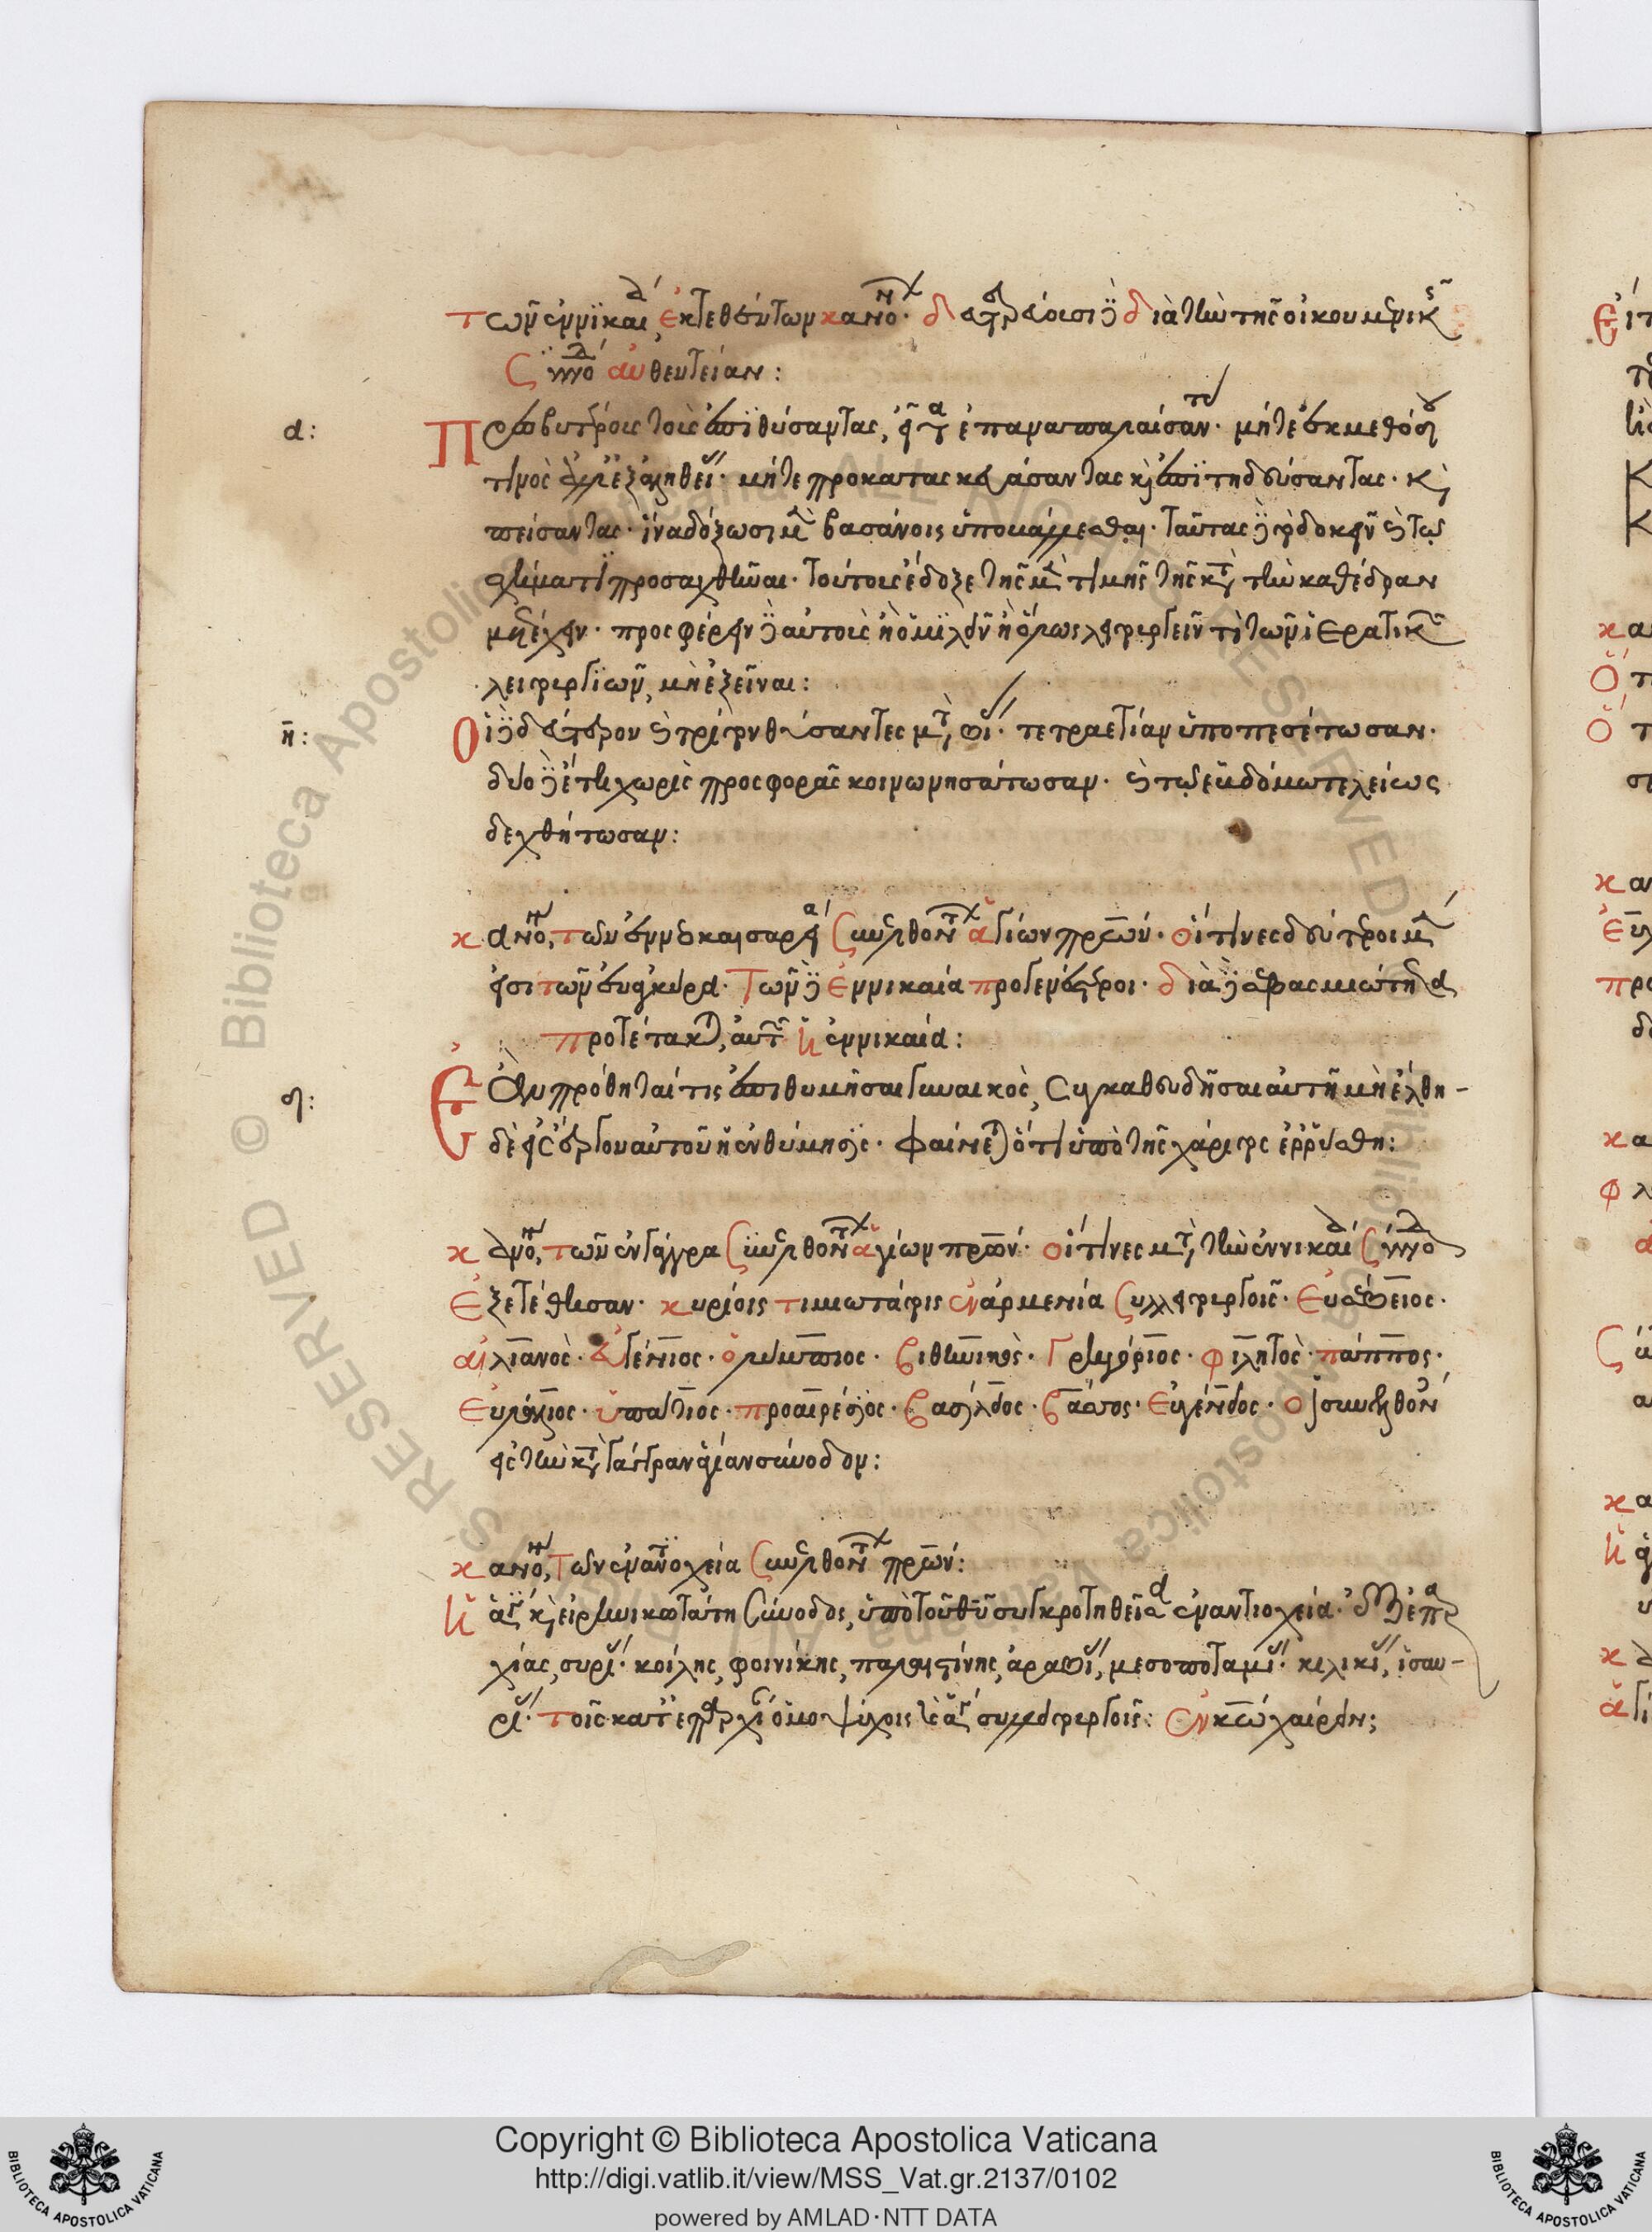 τῶν ἐν νικαία ἐκτεθέντων κανόνων· δευτερεύουσι δὲ διὰ τὴν τῆς οἰκουμενικῆς
συνόδου αὐθεντείαν:
α: Πρεσβυτέρους τοὺς ἐπιθύσαντας, εἶτα ἐπαναπαλαίσαντας· μήτε ἐκ μεθόδου
τινὸς ἀλλ' ἐξ ἀληθείας· μήτε προκατασκευάσαντας καὶ ἐπιτηδεύσαντας· καὶ
πείσαντας· ἵνα δόξωσι μὲν βασάνοις ὑποβάλλεσθαι· ταύτας δὲ τῶ δοκεῖν καὶ τῶ
σχήματι προσαχθῆναι· τούτους ἔδοξε τῆς μὲν τιμῆς τῆς κατὰ τὴν καθέδραν
μετέχειν· προσφέρειν δὲ αὐτοὺς ἢ ὁμιλεῖν ἢ ὅλως λειτουργεῖν τι τῶν ἱερατικῶν
λειτουργιῶν, μὴ ἐξεῖναι:
η: Οἱ δὲ δεύτερον καὶ τρίτον θύσαντες μετὰ βίας· τετραετίαν ὑποπεσέτωσαν·
δύο δὲ ἔτη χωρὶς προσφορᾶς κοινωνησάτωσαν· καὶ τῶ ἑβδόμω τελείως
δεχθήτωσαν:
κανόνες τῶν ἐν νεοκαισαρεία συνελθόντων ἁγίων πατέρων· οἵτινες δεύτεροι μέν
εἰσι τῶν ἐν ἀγκύρα· τῶν δὲ ἐν νικαία προγενέστεροι·
προτέτακται αὐτῶν ἡ ἐν νικαία:
δ: Ἐὰν πρόθηταί τις ἐπιθυμῆσαι γυναικὸς, συγκαθευδῆσαι αὐτῆ μὴ ἔλθη-
δὲ εἰς ἔργον αὐτοῦ ἡ ἐνθύμησις· φαίνεται ὅτι ὑπὸ τῆς χάριτος ἐρρύσθη:
κανόνες τῶν ἐν γάγγρα συνελθόντων ἁγίων πατέρων· οἵτινες μετὰ τὴν ἐν νικαία σύνοδον
ἐξετέθησαν· κυρίοις τιμιωτάτοις ἐν ἀρμενία συλλειτουργοῖς· Εὐσέβειος·
αἰλιανὸς· εὐγένιος· ὀλύμπιος· βιθυνικὸς· Γρηγόριος· φιλητὸς· πάππος·
Εὐλάλιος· ὑπάτιος· προαιρέσιος· βασίλειος· βάσσος· Εὐγένιος· οἱ συνελθόντες
εἰς τὴν κατὰ γάγγραν ἁγίαν σύνοδον:
κανόνες τῶν ἐν ἀντιοχεία συνελθόντων πατέρων:
Ἡ ἁγία καὶ εἰρηνικωτάτη σύνοδος, ὑπὸ τοῦ θυ συγκροτηθεῖσα ἐν ἀντιοχεία· ἐξ ἐπαρ
χίας, συρίας· κοίλης, φοινίκης, παλαιστίνης, ἀραβίας, μεσοποταμίας· κιλικίας, ἰσαυ-
ρίας· τοῖς κατ' ἐπαρχίαν ὁμοψύχοις καὶ ἁγίοις συλλειτουργοῖς: ἐν κω χαίρειν;
Copyright © Biblioteca Apostolica Vaticana
http://digi.vatlib.it/view/MSS_Vat.gr.2137/0102
powered by AMLAD·NTT DATA